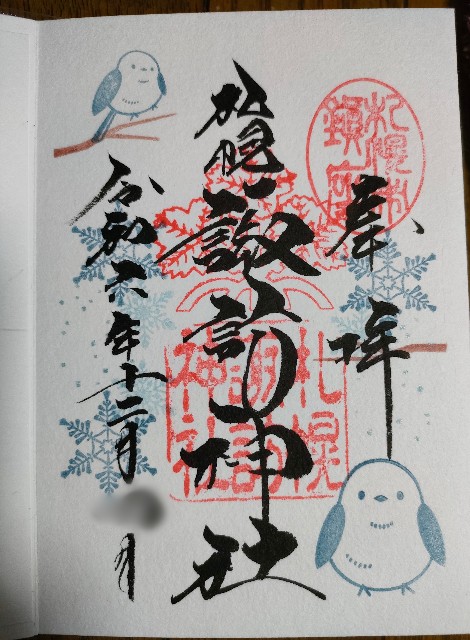 札幌市
鎮座
奉拝
札幌
諏訪神社
札幌
諏訪
神社
令和六年十二月 日